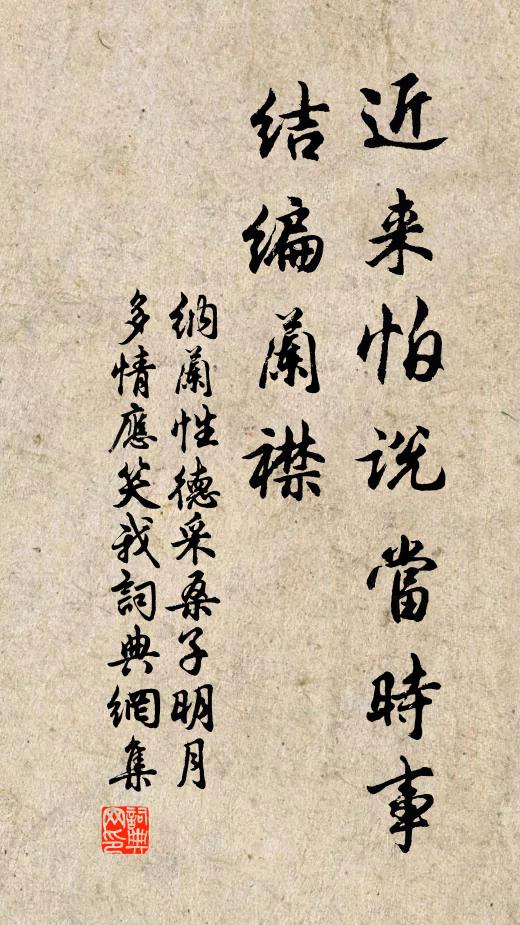 近来怕说當時事
结编蘭襟
纳蘭性德采桑子明月
多情應笑我詞典網集
詞典
网印